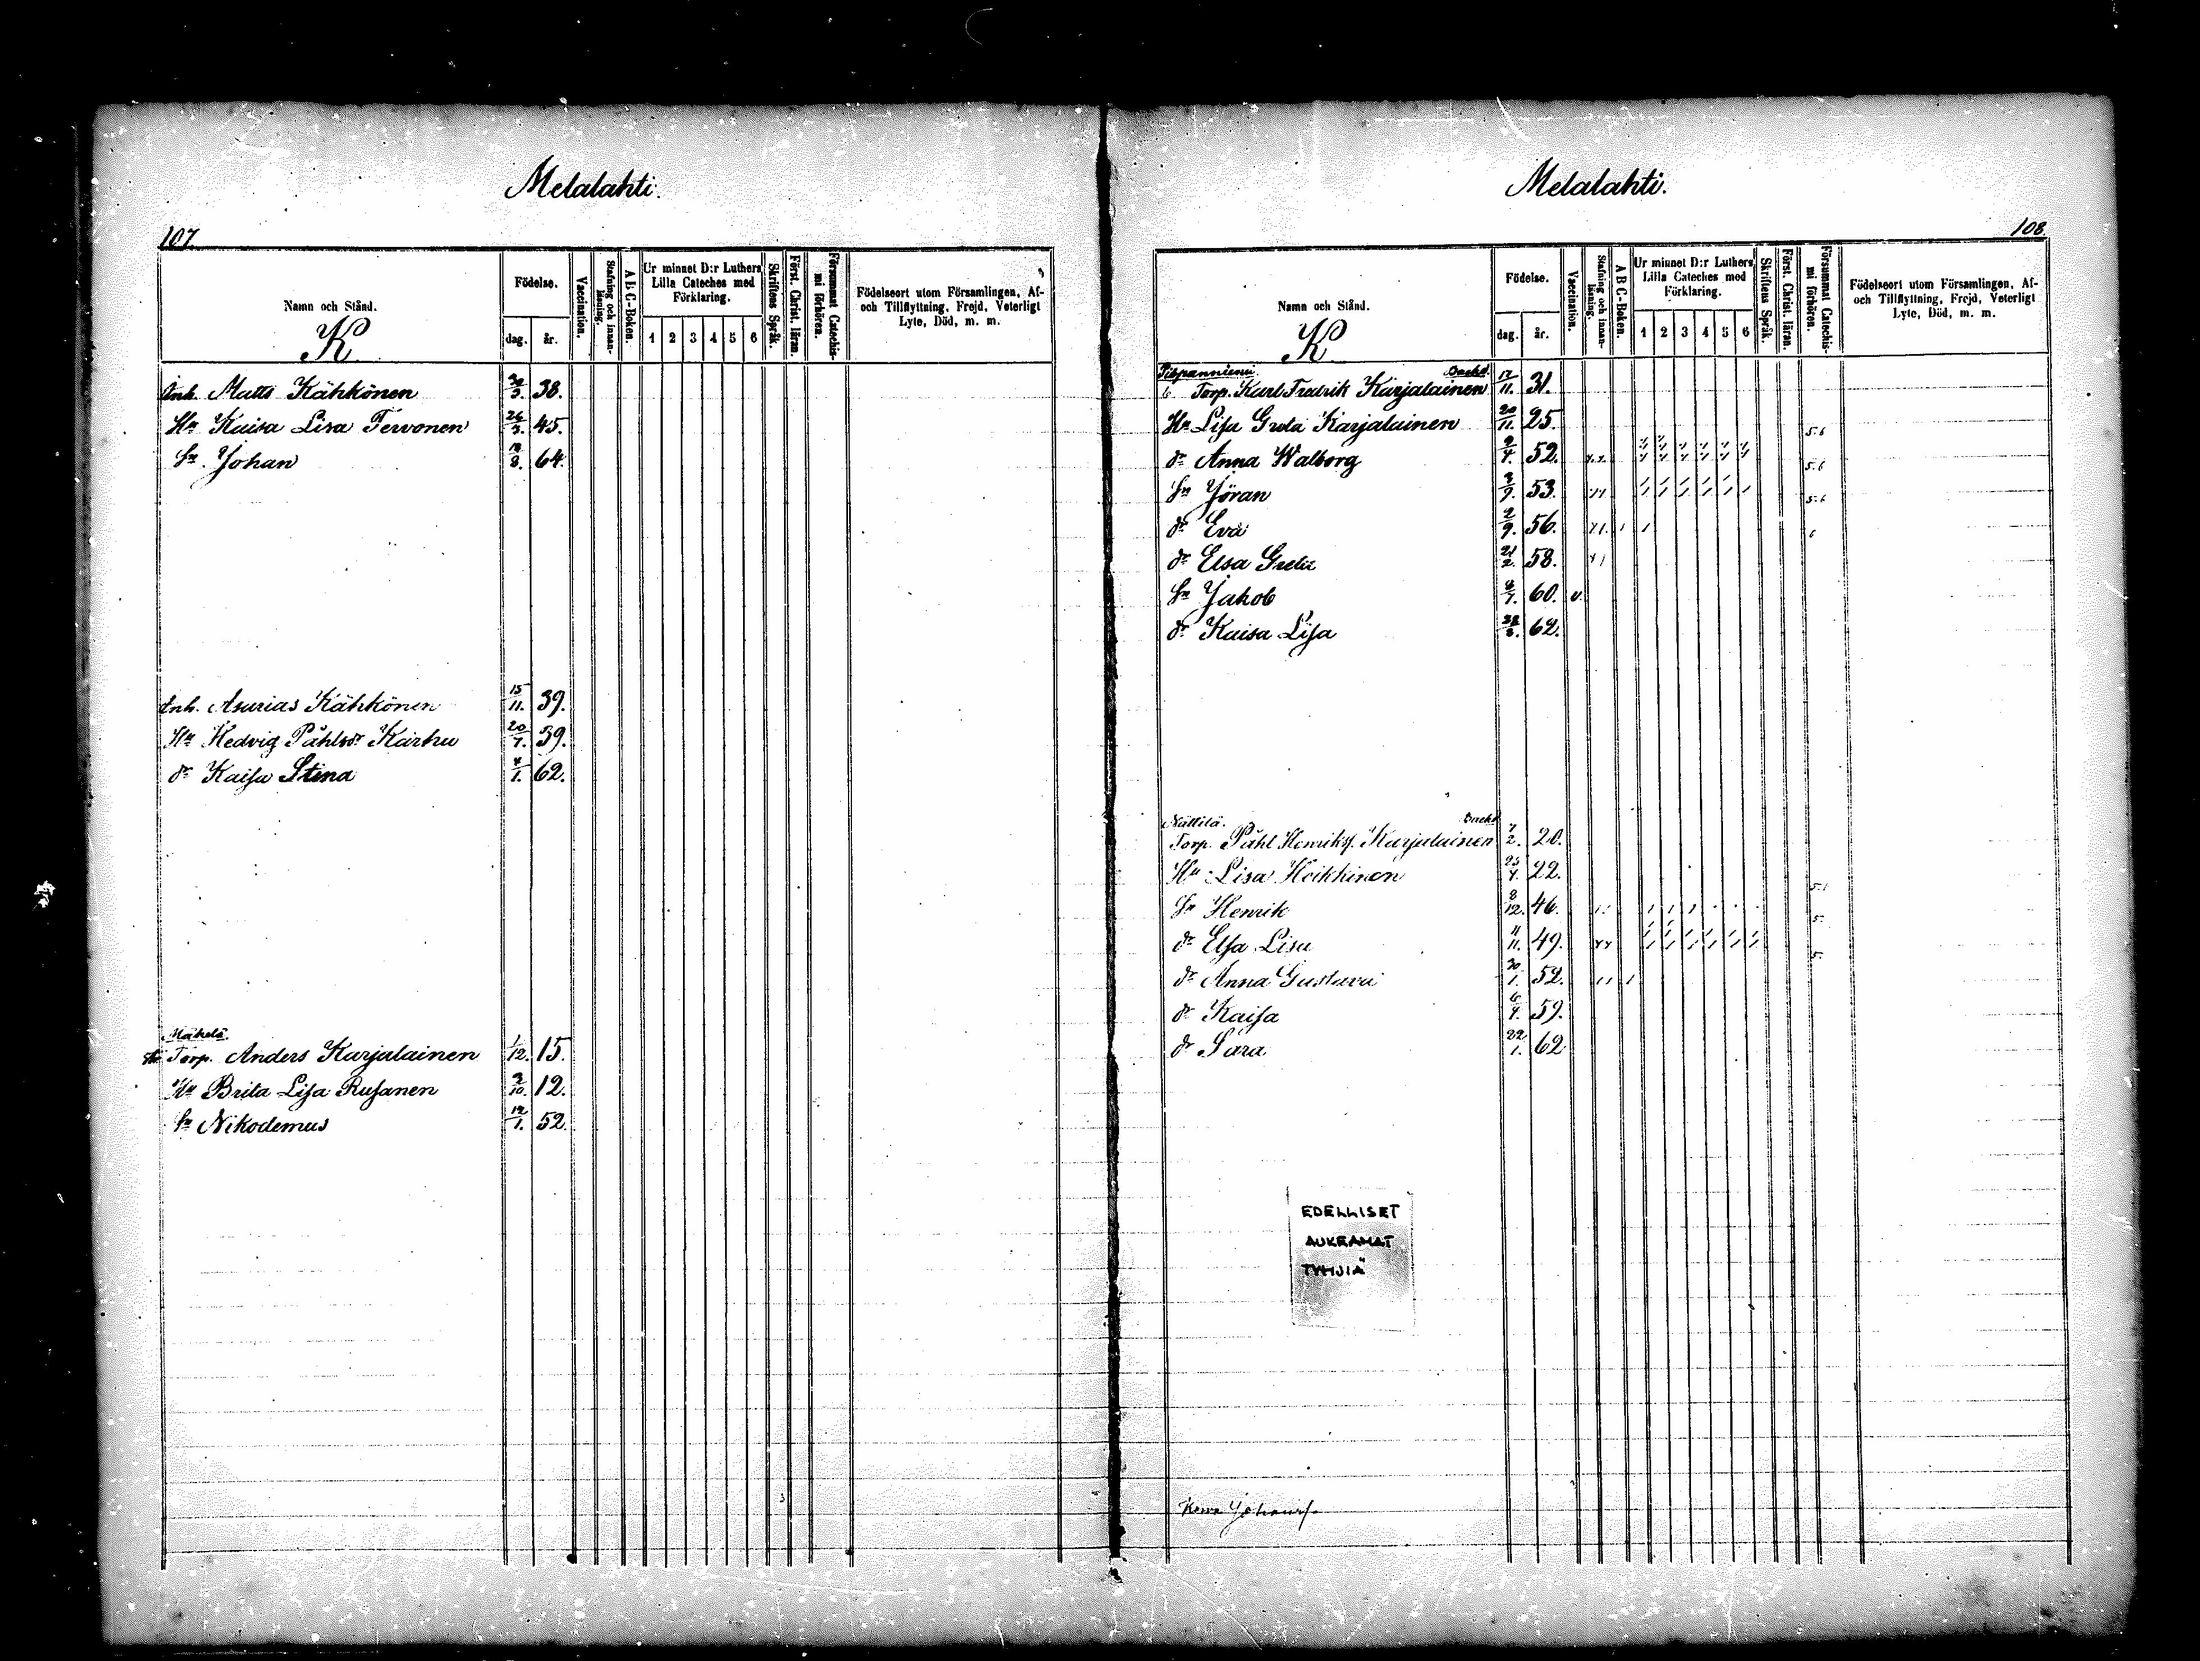 Melalahti.
107
Namn och Stånd.
K
Födelse.
dag.
år.
Vaccination.
Stafning och innan-
läsning.
A B C-Boken.
Ur minnet D:r Luthers
Lilla Cateches med
Förklaring.
1 2 3 4 5 6
Skriftens Språk.
Först. Christ. läran.
Försummat Catechis-
mi förhören.
Födelseort utom Församlingen, Af-
och Tillflyttning, Frejd, Veterligt
Lyte, Död, m. m.
Inh. Matts Kähkönen 38.
Hu Kaisa Lisa Tervonen 26/3. 45.
Sn. Johan 64.
Inh. Asarias Kähkönen 15/11. 39.
Hu Hedvig Påhlsdr Karhu 20/7. 39.
dr Kaisa Stina 4/1. 62.
Mäkelä.
Torp. Anders Karjalainen 1/12. 15.
Hu Brita Lisa Rusanen 12.
Sn Nikodemus 12/1. 52.
Melalahti.
108
Namn och Stånd.
K
Födelse.
dag.
år.
Vaccination.
Stafning och innan-
läsning.
A B C-Boken.
Ur minnet D:r Luthers
Lilla Cateches med
Förklaring.
1 2 3 4 5 6
Skriftens Språk.
Först. Christ. läran.
Försummat Catechis-
mi förhören.
Födelseort utom Församlingen, Af-
och Tillflyttning, Frejd, Veterligt
Lyte, Död, m. m.
Torp. Karl Fredrik Karjalainen 12/11. 31.
Hu Lisa Greta Karjalainen 20/11. 25.
5.6
dr Anna Walborg 52.
5.6
Sn Jöran 53.
5.6
dr Eva 2/9. 56.
6
dr Elsa Greta 21/2. 58.
Sn Jakob 60. v.
dr Kaisa Lisa 62.
Nättilä.
Torp. Påhl Henriks. Karjalainen 20.
Hu Lisa Heikkinen 22.
Sn Henrik 8/12. 46.
5.
dr Elsa Lisa 11/11. 49.
5.
dr Anna Gustava 30/1. 52.
dr Kaisa 59.
dr Sara 22/1. 62
EDELLISET
AUKEAMAT
TYHJIÄ